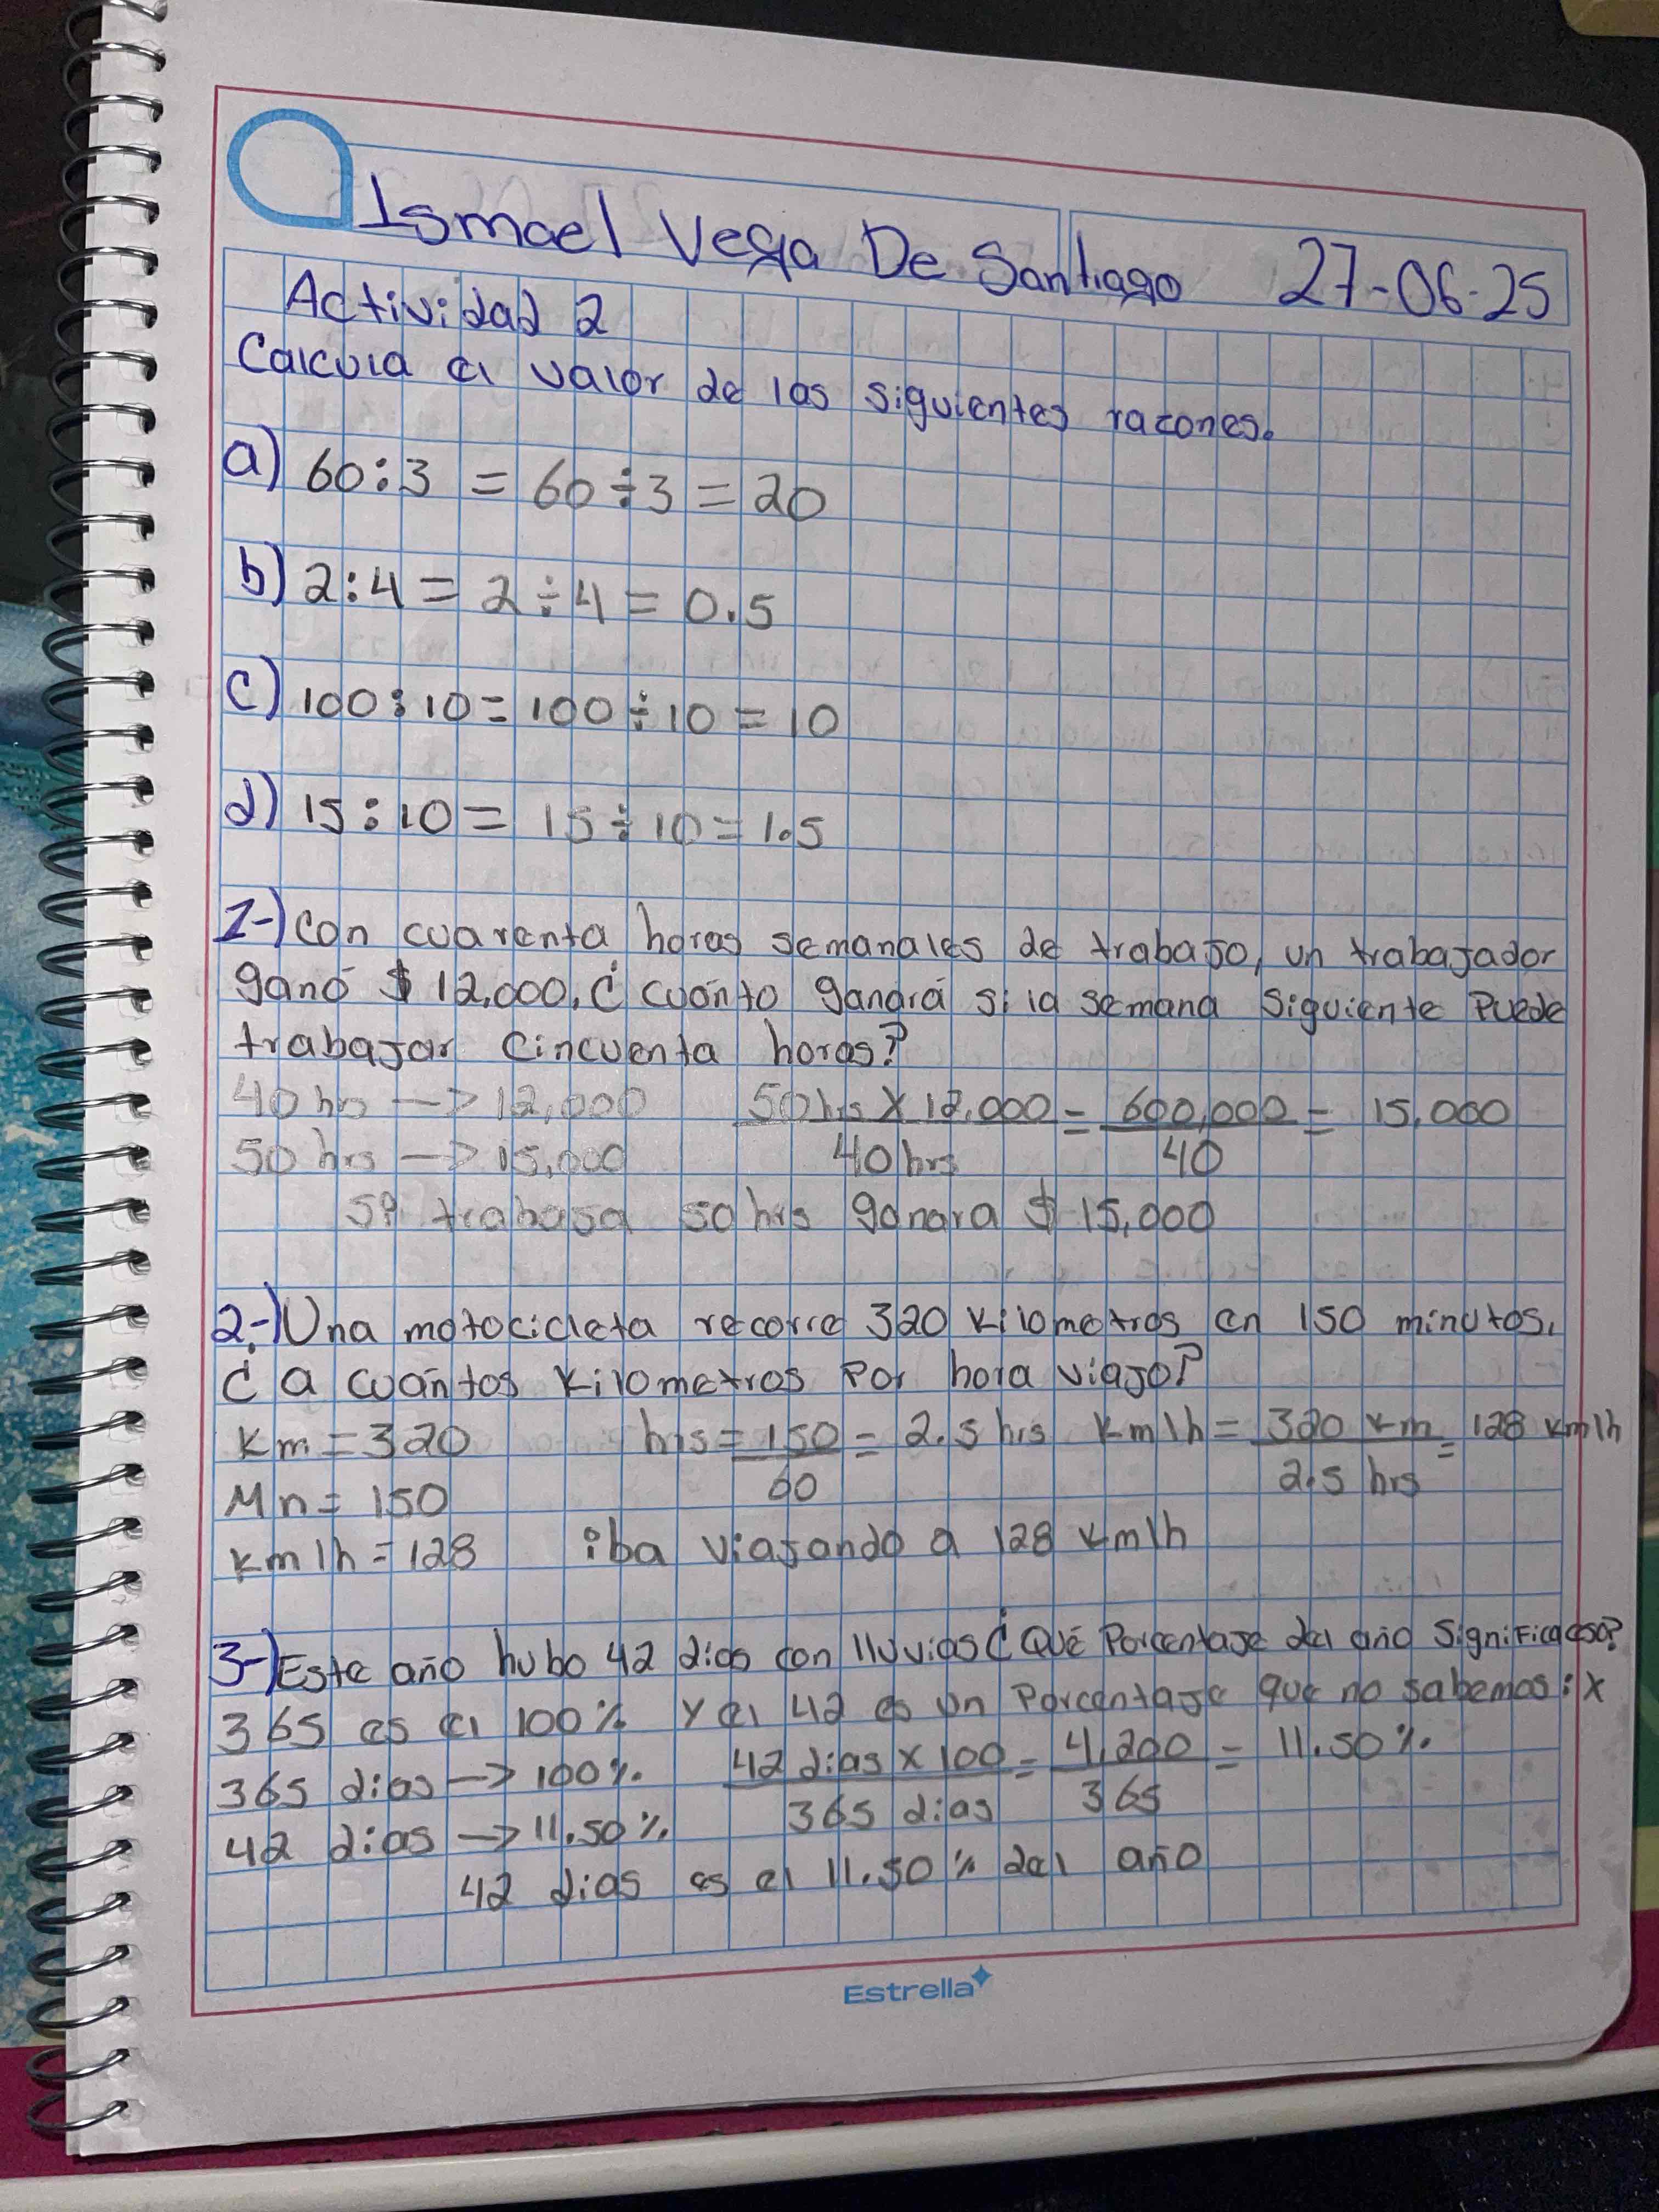 Ismael Vega De Santiago 27-06-25
Actividad 2
Calcula el valor de las siguientes razones.
a) 60:3 = 60÷3 = 20
b) 2:4 = 2÷4 = 0.5
c) 100:10 = 100÷10 = 10
d) 15:10 = 15÷10 = 1.5
1-) Con cuarenta horas semanales de trabajo, un trabajador
ganó $ 12,000, ¿cuánto ganará si la semana siguiente puede
trabajar cincuenta horas?
40 hrs -> 12,000 50 hrs x 12,000 / 40 hrs = 600,000 / 40 = 15,000
50 hrs -> 15,000
si trabaja 50 hrs ganara $ 15,000
2-) Una motocicleta recorre 320 kilometros en 150 minutos,
¿a cuántos kilometros por hora viajo?
Km = 320 hrs = 150 / 60 = 2.5 hrs km/h = 320 km / 2.5 hrs = 128 km/h
Mn = 150
km/h = 128 iba viajando a 128 km/h
3-) Este año hubo 42 dias con lluvias ¿Qué Porcentaje del año significa eso?
365 es el 100% y el 42 es un Porcentaje que no sabemos: x
365 dias -> 100% 42 dias x 100 / 365 dias = 4,200 / 365 = 11.50%
42 dias -> 11.50%
42 dias es el 11.50% del año
Estrella